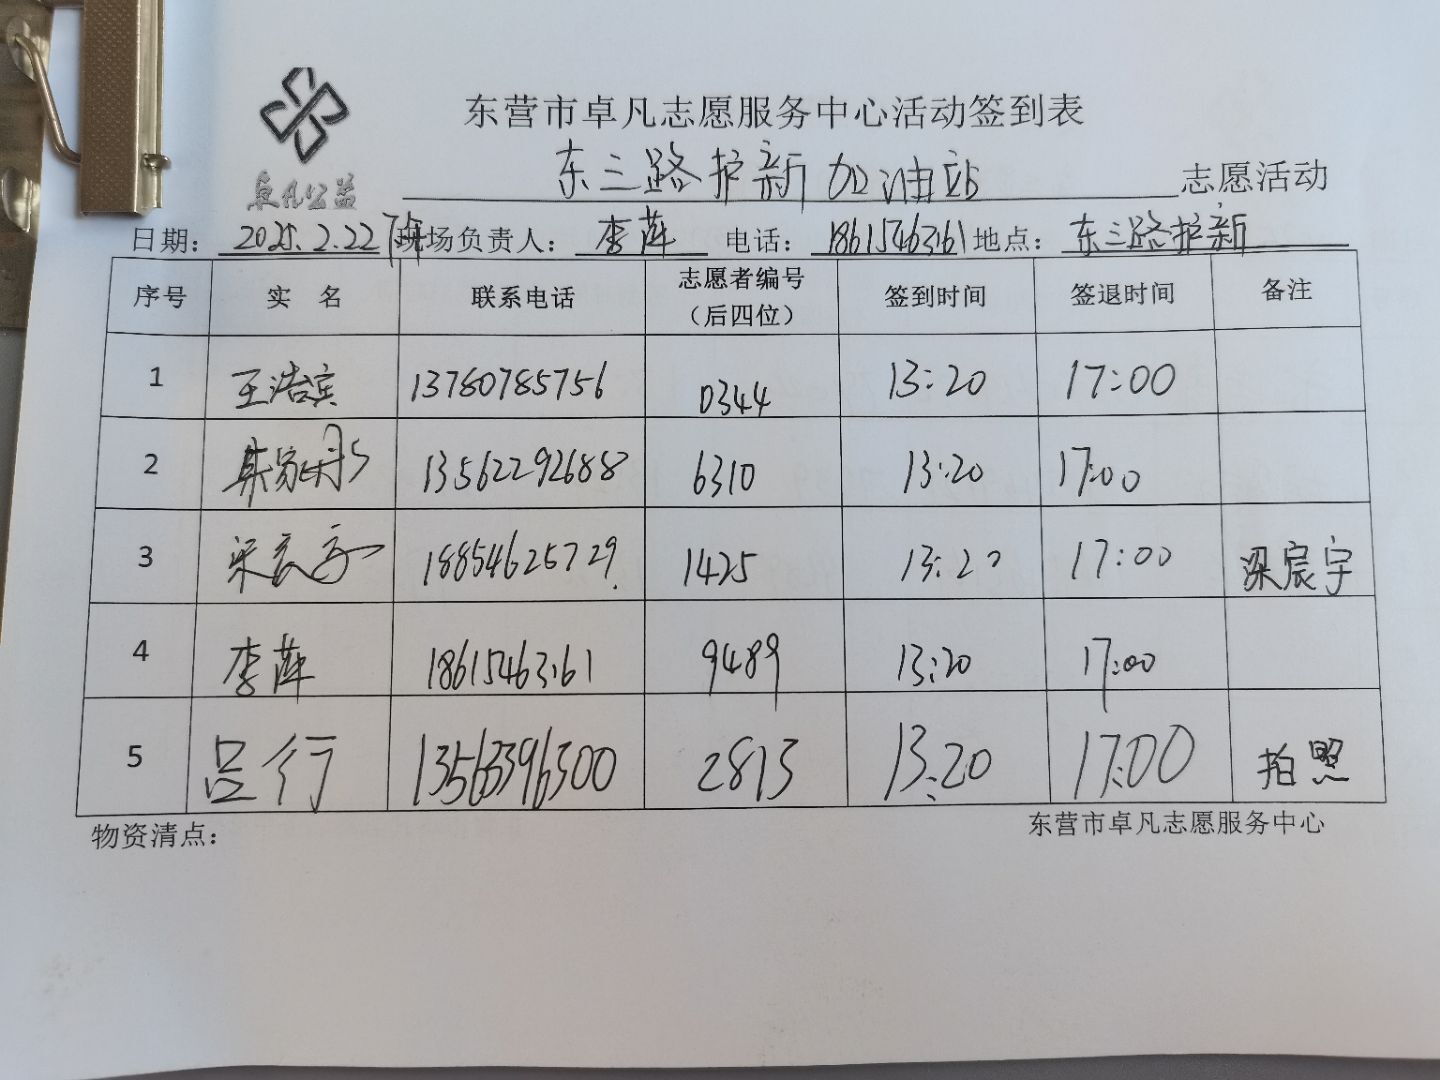 东营市卓凡志愿服务中心活动签到表
卓凡公益
东三路护新加油站 志愿活动
日期: 2025.2.22下午 现场负责人: 李萍 电话: 18615463161 地点: 东三路护新
序号 实 名 联系电话 志愿者编号（后四位） 签到时间 签退时间 备注
1 王浩宾 13780785756 0344 13:20 17:00
2 13562292688 6310 13:20 17:00
3 梁宸宇 18854625729 1425 13:20 17:00 梁宸宇
4 李萍 18615463161 9489 13:20 17:00
5 吕行 13563396300 2813 13:20 17:00 拍照
物资清点: 东营市卓凡志愿服务中心